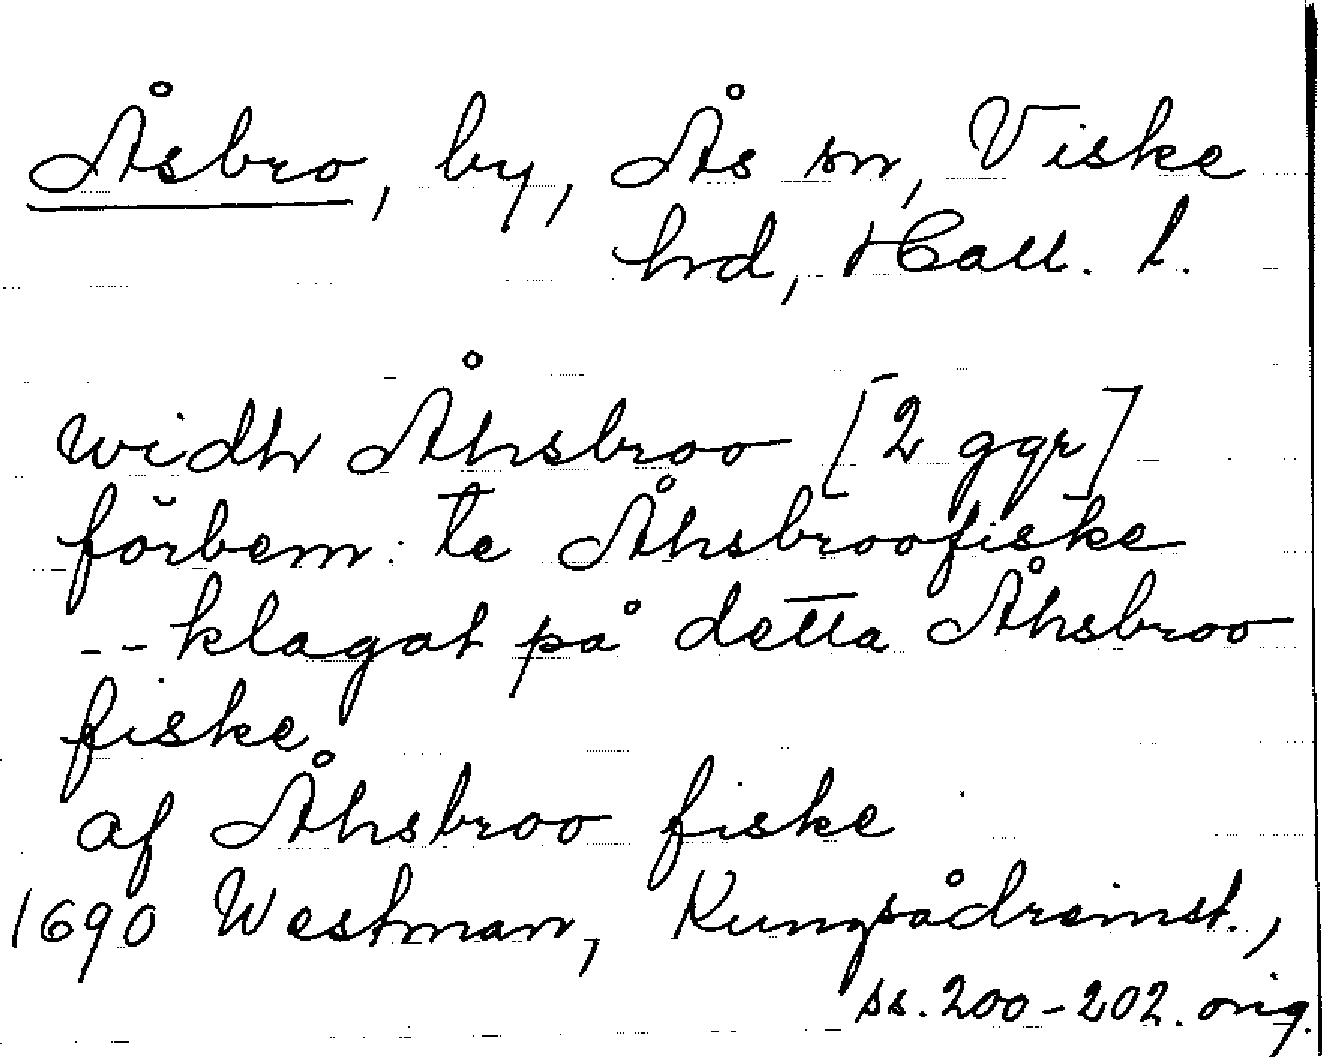 Åsbro, by, Ås sn, Viske
hrd, Hall. l.
widh Åhsbroo [2 ggr]
förbem: te Åhsbroofiske
-- klagat på detta Åhsbroo
fiske
af Åhsbroo fiske
1690 Westman, Kungsådreinst.,
ss. 200-202. orig.